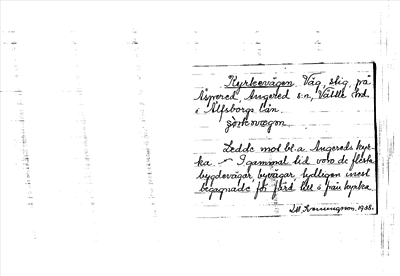 Kyrkevägen. Väg, stig, på
Aspered, Angered s:n, Vättle hd.
i Älfsborgs län.
Ledde mot bl.a. Angereds kyr-
ka. — I gammal tid voro de flesta
bygdevägar, byvägar, tydligen mest
begagnade för färd till o från kyrka
1938.